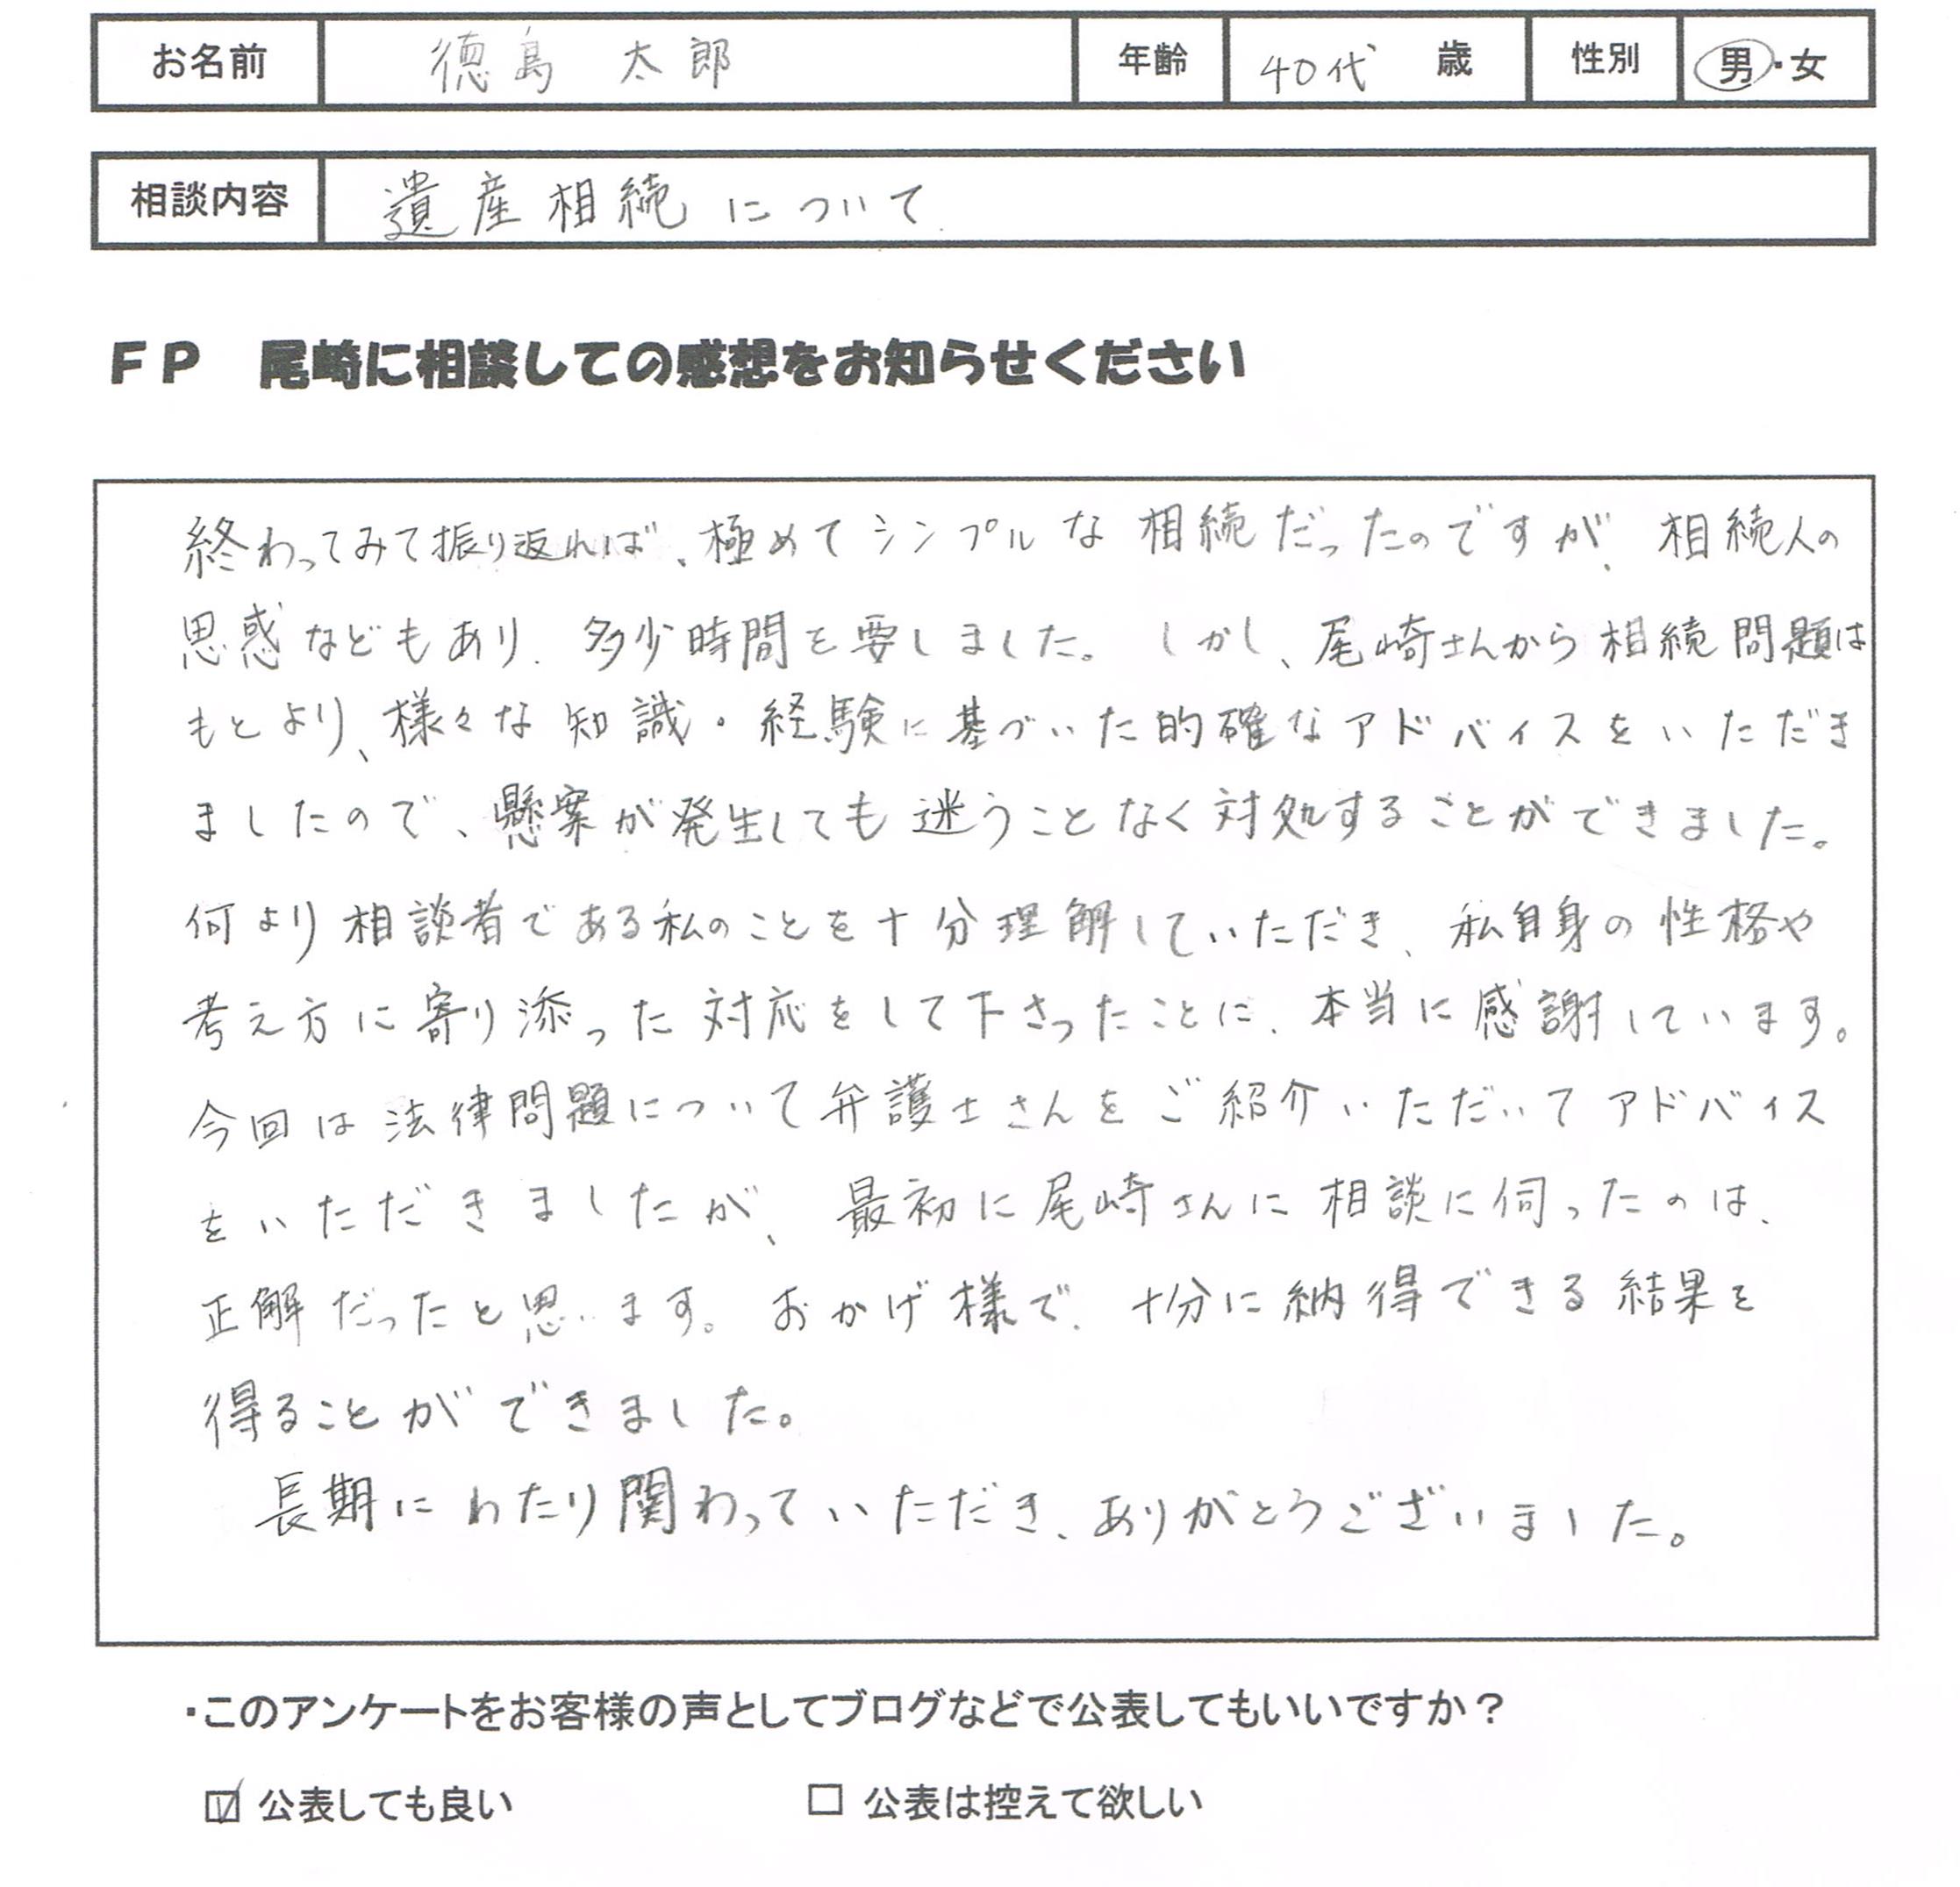 お名前 徳島 太郎 年齢 40代 歳 性別 男・女
相談内容 遺産相続について
FP 尾崎に相談しての感想をお知らせください
終わってみて振り返れば、極めてシンプルな相続だったのですが、相続人の
思惑などもあり、多少時間を要しました。しかし、尾崎さんから相続問題は
もとより、様々な知識・経験に基づいた的確なアドバイスをいただき
ましたので、懸案が発生しても迷うことなく対処することができました。
何より相談者である私のことを十分理解していただき、私自身の性格や
考え方に寄り添った対応をして下さったことに、本当に感謝しています。
今回は法律問題について弁護士さんをご紹介いただいてアドバイス
をいただきましたが、最初に尾崎さんに相談に伺ったのは、
正解だったと思います。おかげ様で、十分に納得できる結果を
得ることができました。
長期にわたり関わっていただき、ありがとうございました。
・このアンケートをお客様の声としてブログなどで公表してもいいですか？
☑ 公表しても良い □ 公表は控えて欲しい